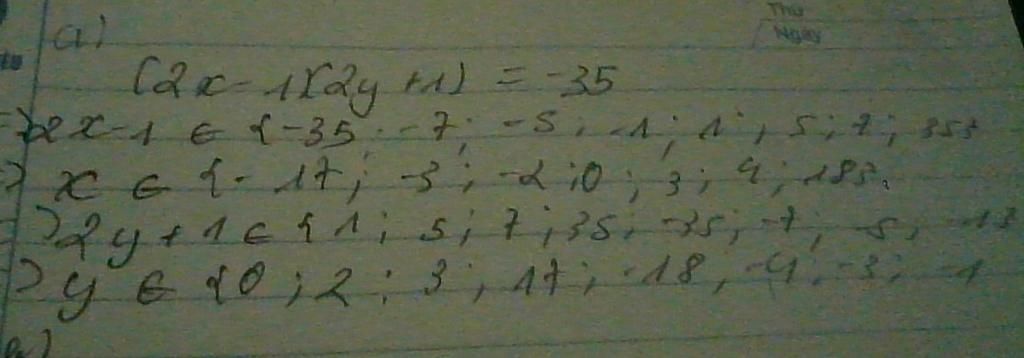 Thứ
Ngày
a)
(2x-1)(2y+1) = -35
=> 2x-1 ∈ {-35; -7; -5; -1; 1; 5; 7; 35}
=> x ∈ {-17; -3; -2; 0; 3; 4; 18}.
=> 2y+1 ∈ {1; 5; 7; 35; -35; -7; -5; -1}
=> y ∈ {0; 2; 3; 17; -18, -4; -3; -1